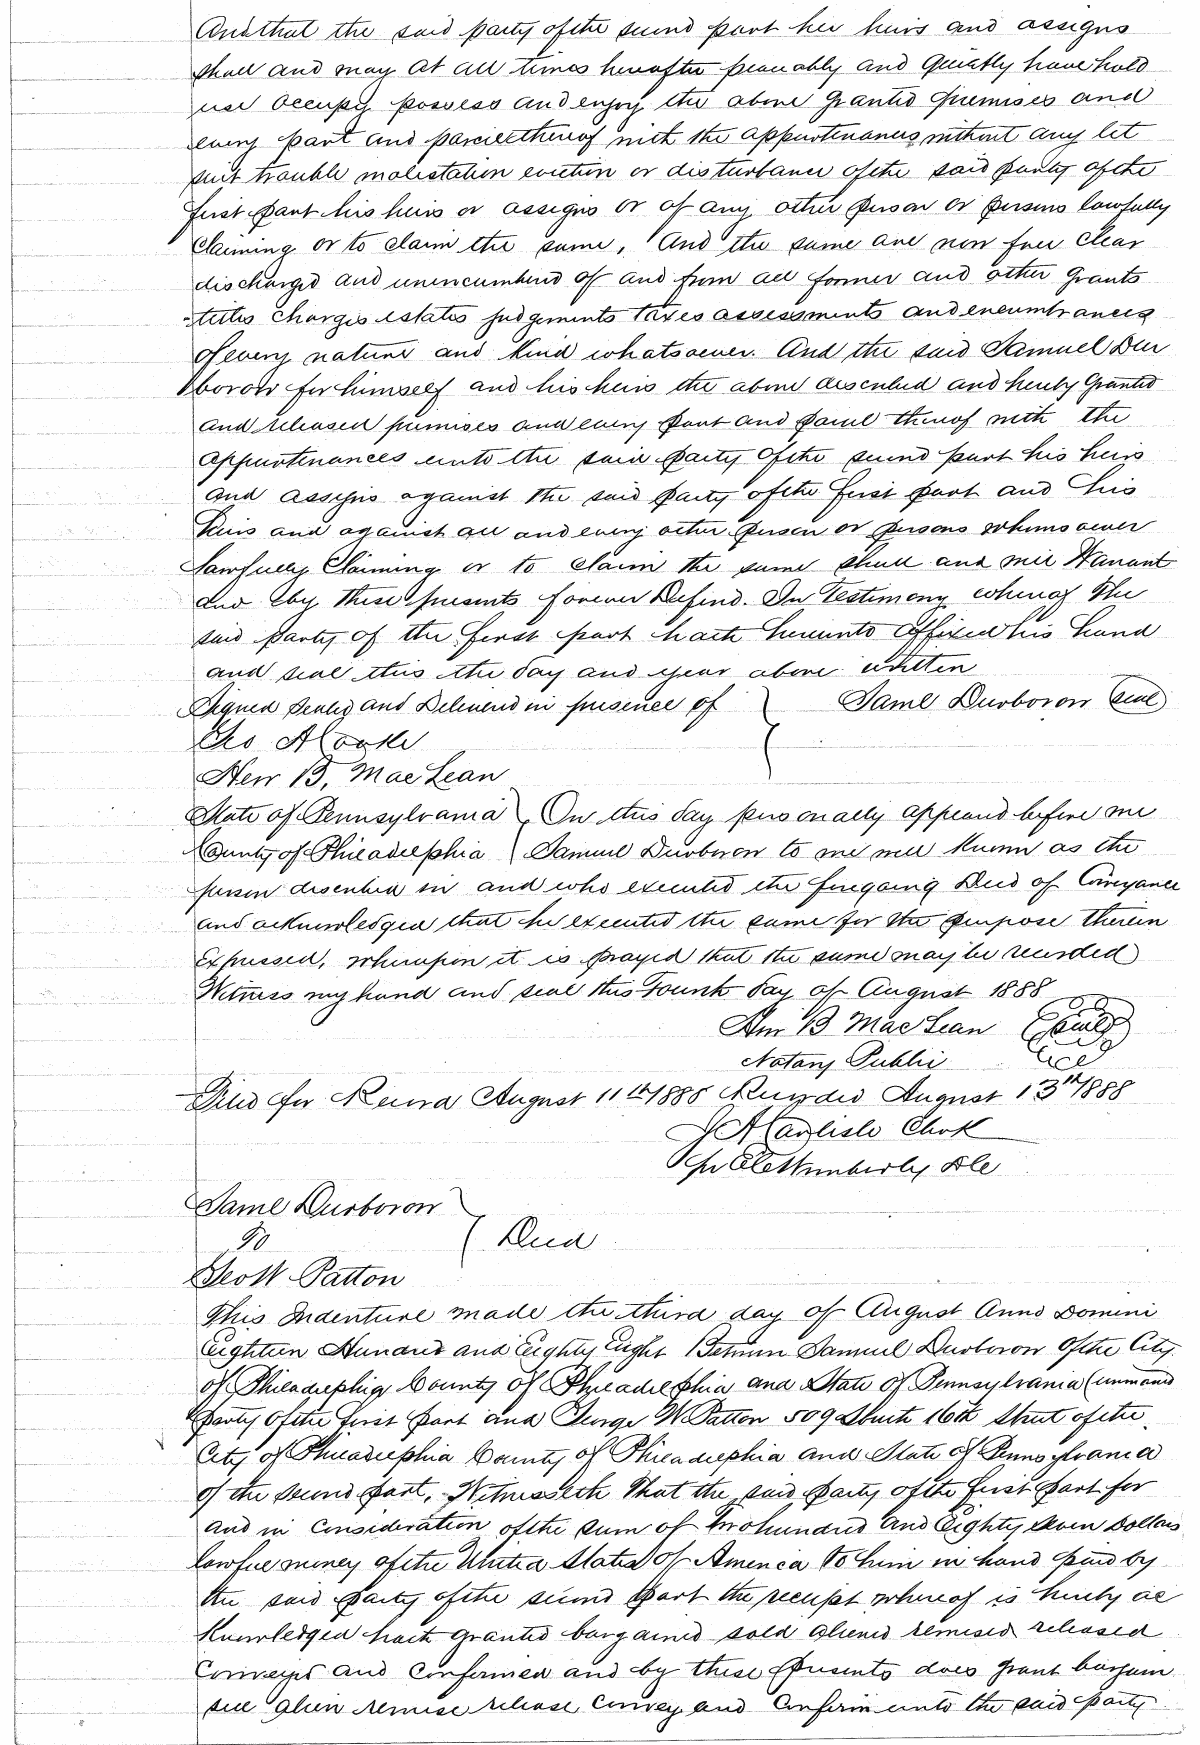 And that the said party of the second part her heirs and assigns
shall and may at all times hereafter peaceably and quietly have hold
use occupy possess and enjoy the above granted premises and
every part and parcel thereof with the appurtenances without any let
suit trouble molestation eviction or disturbance of the said party of the
first part his heirs or assigns or of any other person or persons lawfully
claiming or to claim the same, And the same are now free clear
discharged and unencumbered of and from all former and other grants
titles charges estates judgements taxes assessments and encumbrances
of every nature and kind whatsoever. And the said Samuel Dur
borow for himself and his heirs the above described and hereby Granted
and released premises and every part and parcel thereof with the
appurtenances unto the said party of the second part his heirs
and assigns against the said party of the first part and his
heirs and against all and every other person or persons whomsoever
lawfully Claiming or to claim the same shall and will Warrant
and by these presents forever Defend. In Testimony whereof The
said party of the first part hath hereunto affixed his hand
and seal this the day and year above written
Signed Sealed and Delivered in presence of } Saml Durborow (seal)
Cooke
B. MacLean
State of Pennsylvania } On this day personally appeared before me
County of Philadelphia } Samuel Durborow to me well known as the
person described in and who executed the foregoing Deed of Conveyance
and acknowledged that he executed the same for the purpose therein
expressed, whereupon it is prayed that the same may be recorded
Witness my hand and seal this Fourth day of August 1888
B MacLean (seal)
Notary Public
Filed for Record August 11th 1888 Recorded August 13th 1888
J A Carlisle Clerk
Wimberly
Saml Durborow
To } Deed
Geo W. Patton
This Indenture made the third day of August Anno Domini
Eighteen Hundred and Eighty Eight Between Samuel Durborow of the City
of Philadelphia County of Philadelphia and State of Pennsylvania
party of the first part and George W. Patton 509 South 16th Street of the
City of Philadelphia County of Philadelphia and State of Pennsylvania
of the second part, Witnesseth That the said party of the first part for
and in consideration of the sum of Two hundred and Eighty Seven Dollars
lawful money of the United States of America to him in hand paid by
the said party of the second part the receipt whereof is hereby ac
knowledged hath granted bargained sold aliened remised released
Conveyed and Confirmed and by these presents does grant bargain
sell alien remise release Convey and Confirm unto the said party